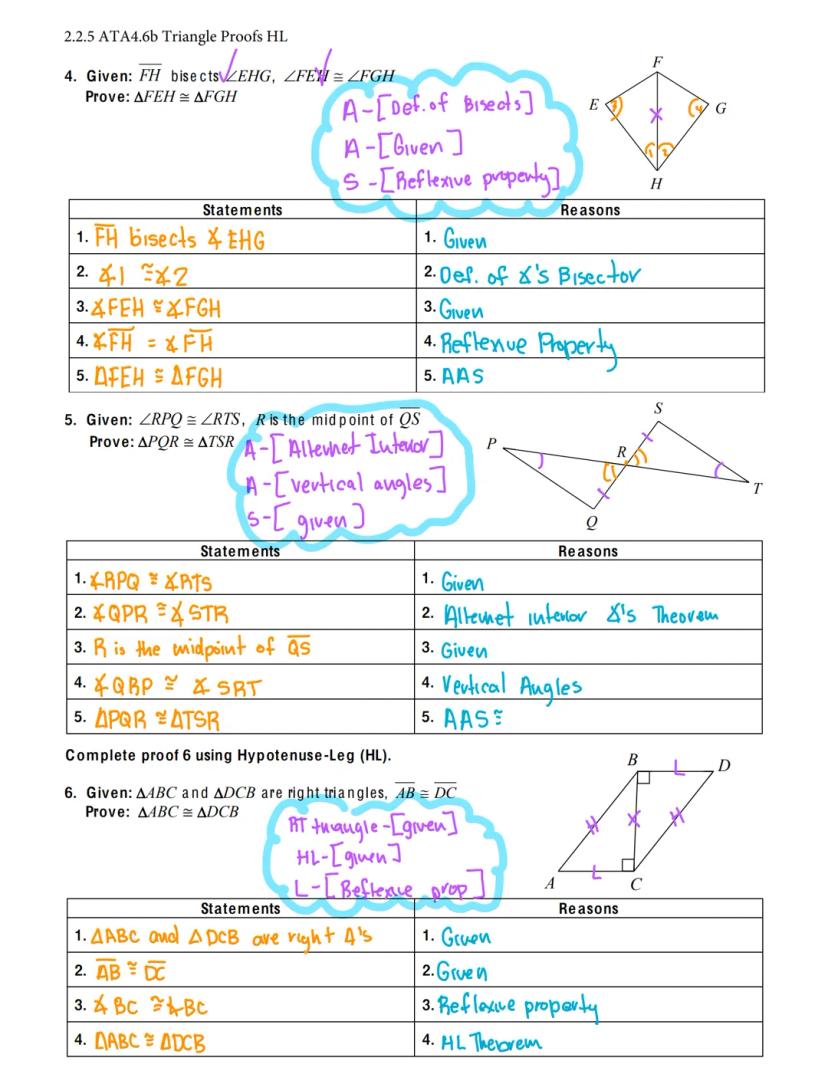 2.2.5 ATA4.6b Triangle Proofs HL
4. Given: FH bisects ∠EHG, ∠FEH ≅ ∠FGH
Prove: ΔFEH ≅ ΔFGH
A-[Def. of Bisects]
A-[Given]
S-[Reflexive property]
F
E
G
1 2
3
4
H
Statements Reasons
1. FH bisects ∡EHG 1. Given
2. ∡1 ≅ ∡2 2. Def. of ∡'s Bisector
3. ∡FEH ≅ ∡FGH 3. Given
4. ∡FH = ∡FH 4. Reflexive Property
5. ΔFEH ≅ ΔFGH 5. AAS
5. Given: ∠RPQ ≅ ∠RTS, R is the midpoint of QS
Prove: ΔPQR ≅ ΔTSR
A-[Alternet Interior]
A-[vertical angles]
S-[given]
S
P
R
T
Q
Statements Reasons
1. ∡RPQ ≅ ∡RTS 1. Given
2. ∡QPR ≅ ∡STR 2. Alternet interior ∡'s Theorem
3. R is the midpoint of QS 3. Given
4. ∡QRP ≅ ∡SRT 4. Vertical Angles
5. ΔPQR ≅ ΔTSR 5. AAS ≅
Complete proof 6 using Hypotenuse-Leg (HL).
6. Given: ΔABC and ΔDCB are right triangles, AB ≅ DC
Prove: ΔABC ≅ ΔDCB
RT triangle-[given]
HL-[given]
L-[Reflexive prop]
B
L
D
H
H
A
L
C
Statements Reasons
1. ΔABC and ΔDCB are right Δ's 1. Given
2. AB ≅ DC 2. Given
3. ∡BC ≅ ∡BC 3. Reflexive property
4. ΔABC ≅ ΔDCB 4. HL Theorem